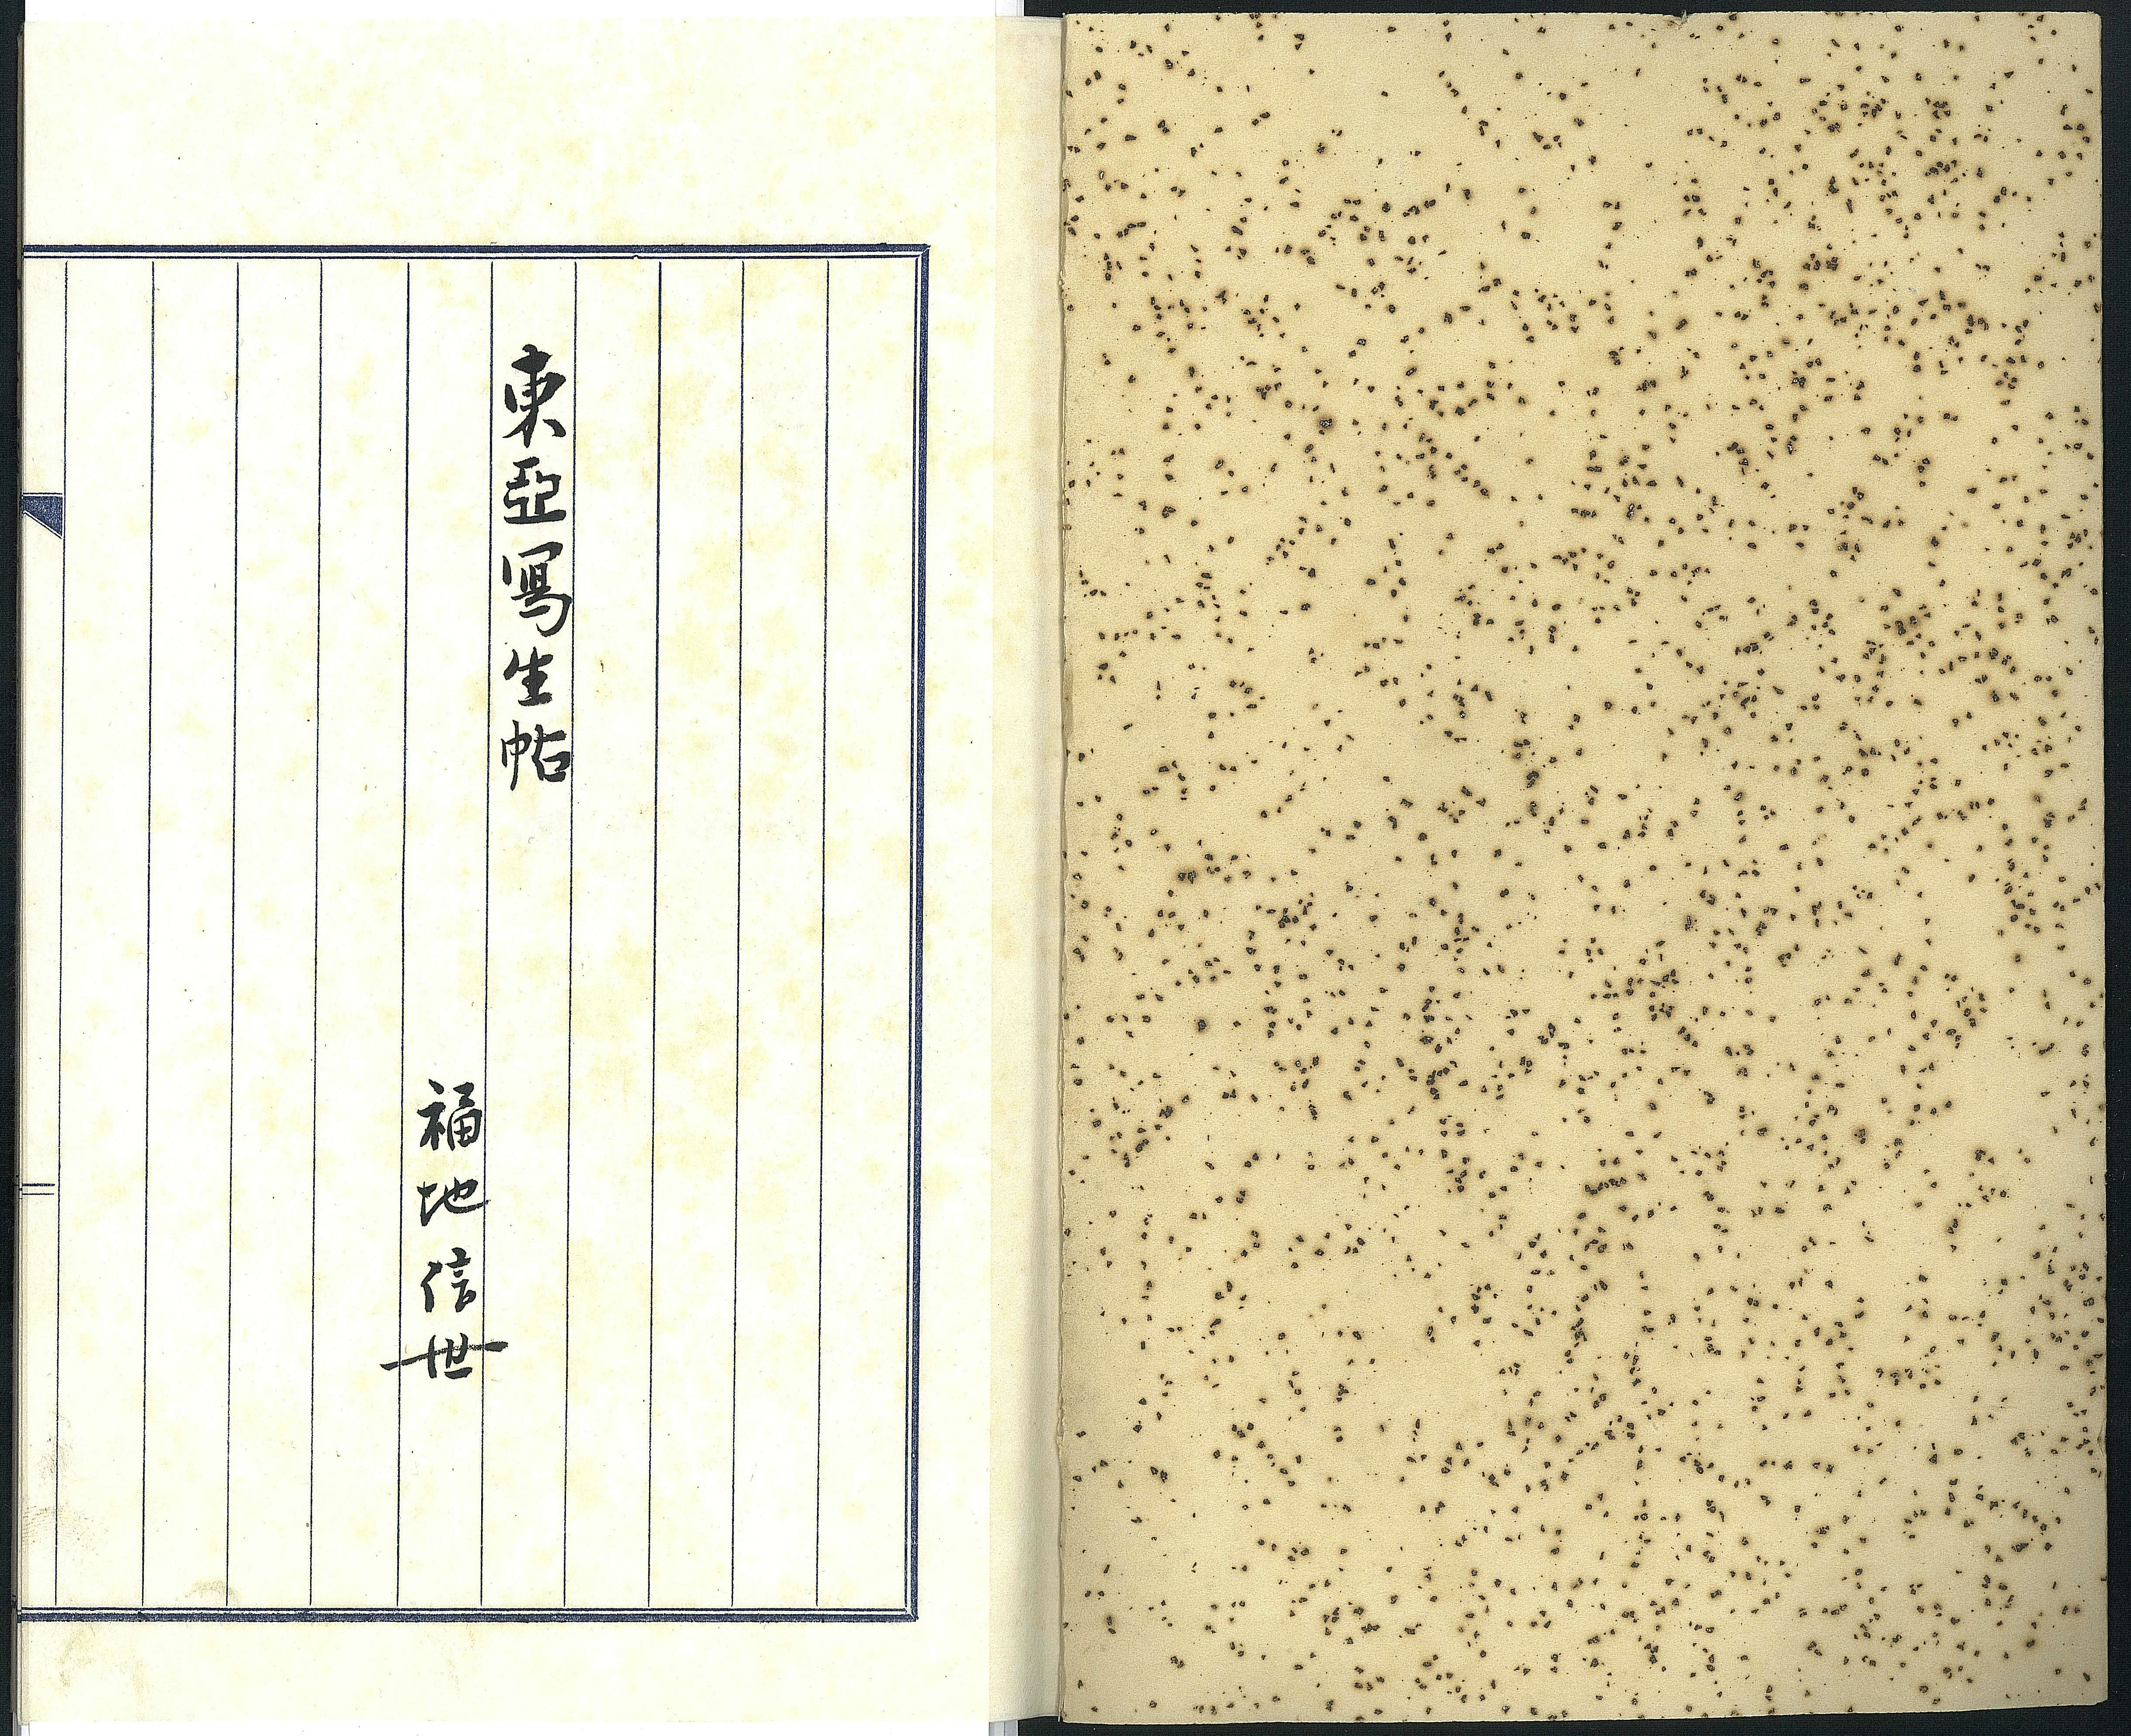 東亞寫生帖
福地信世